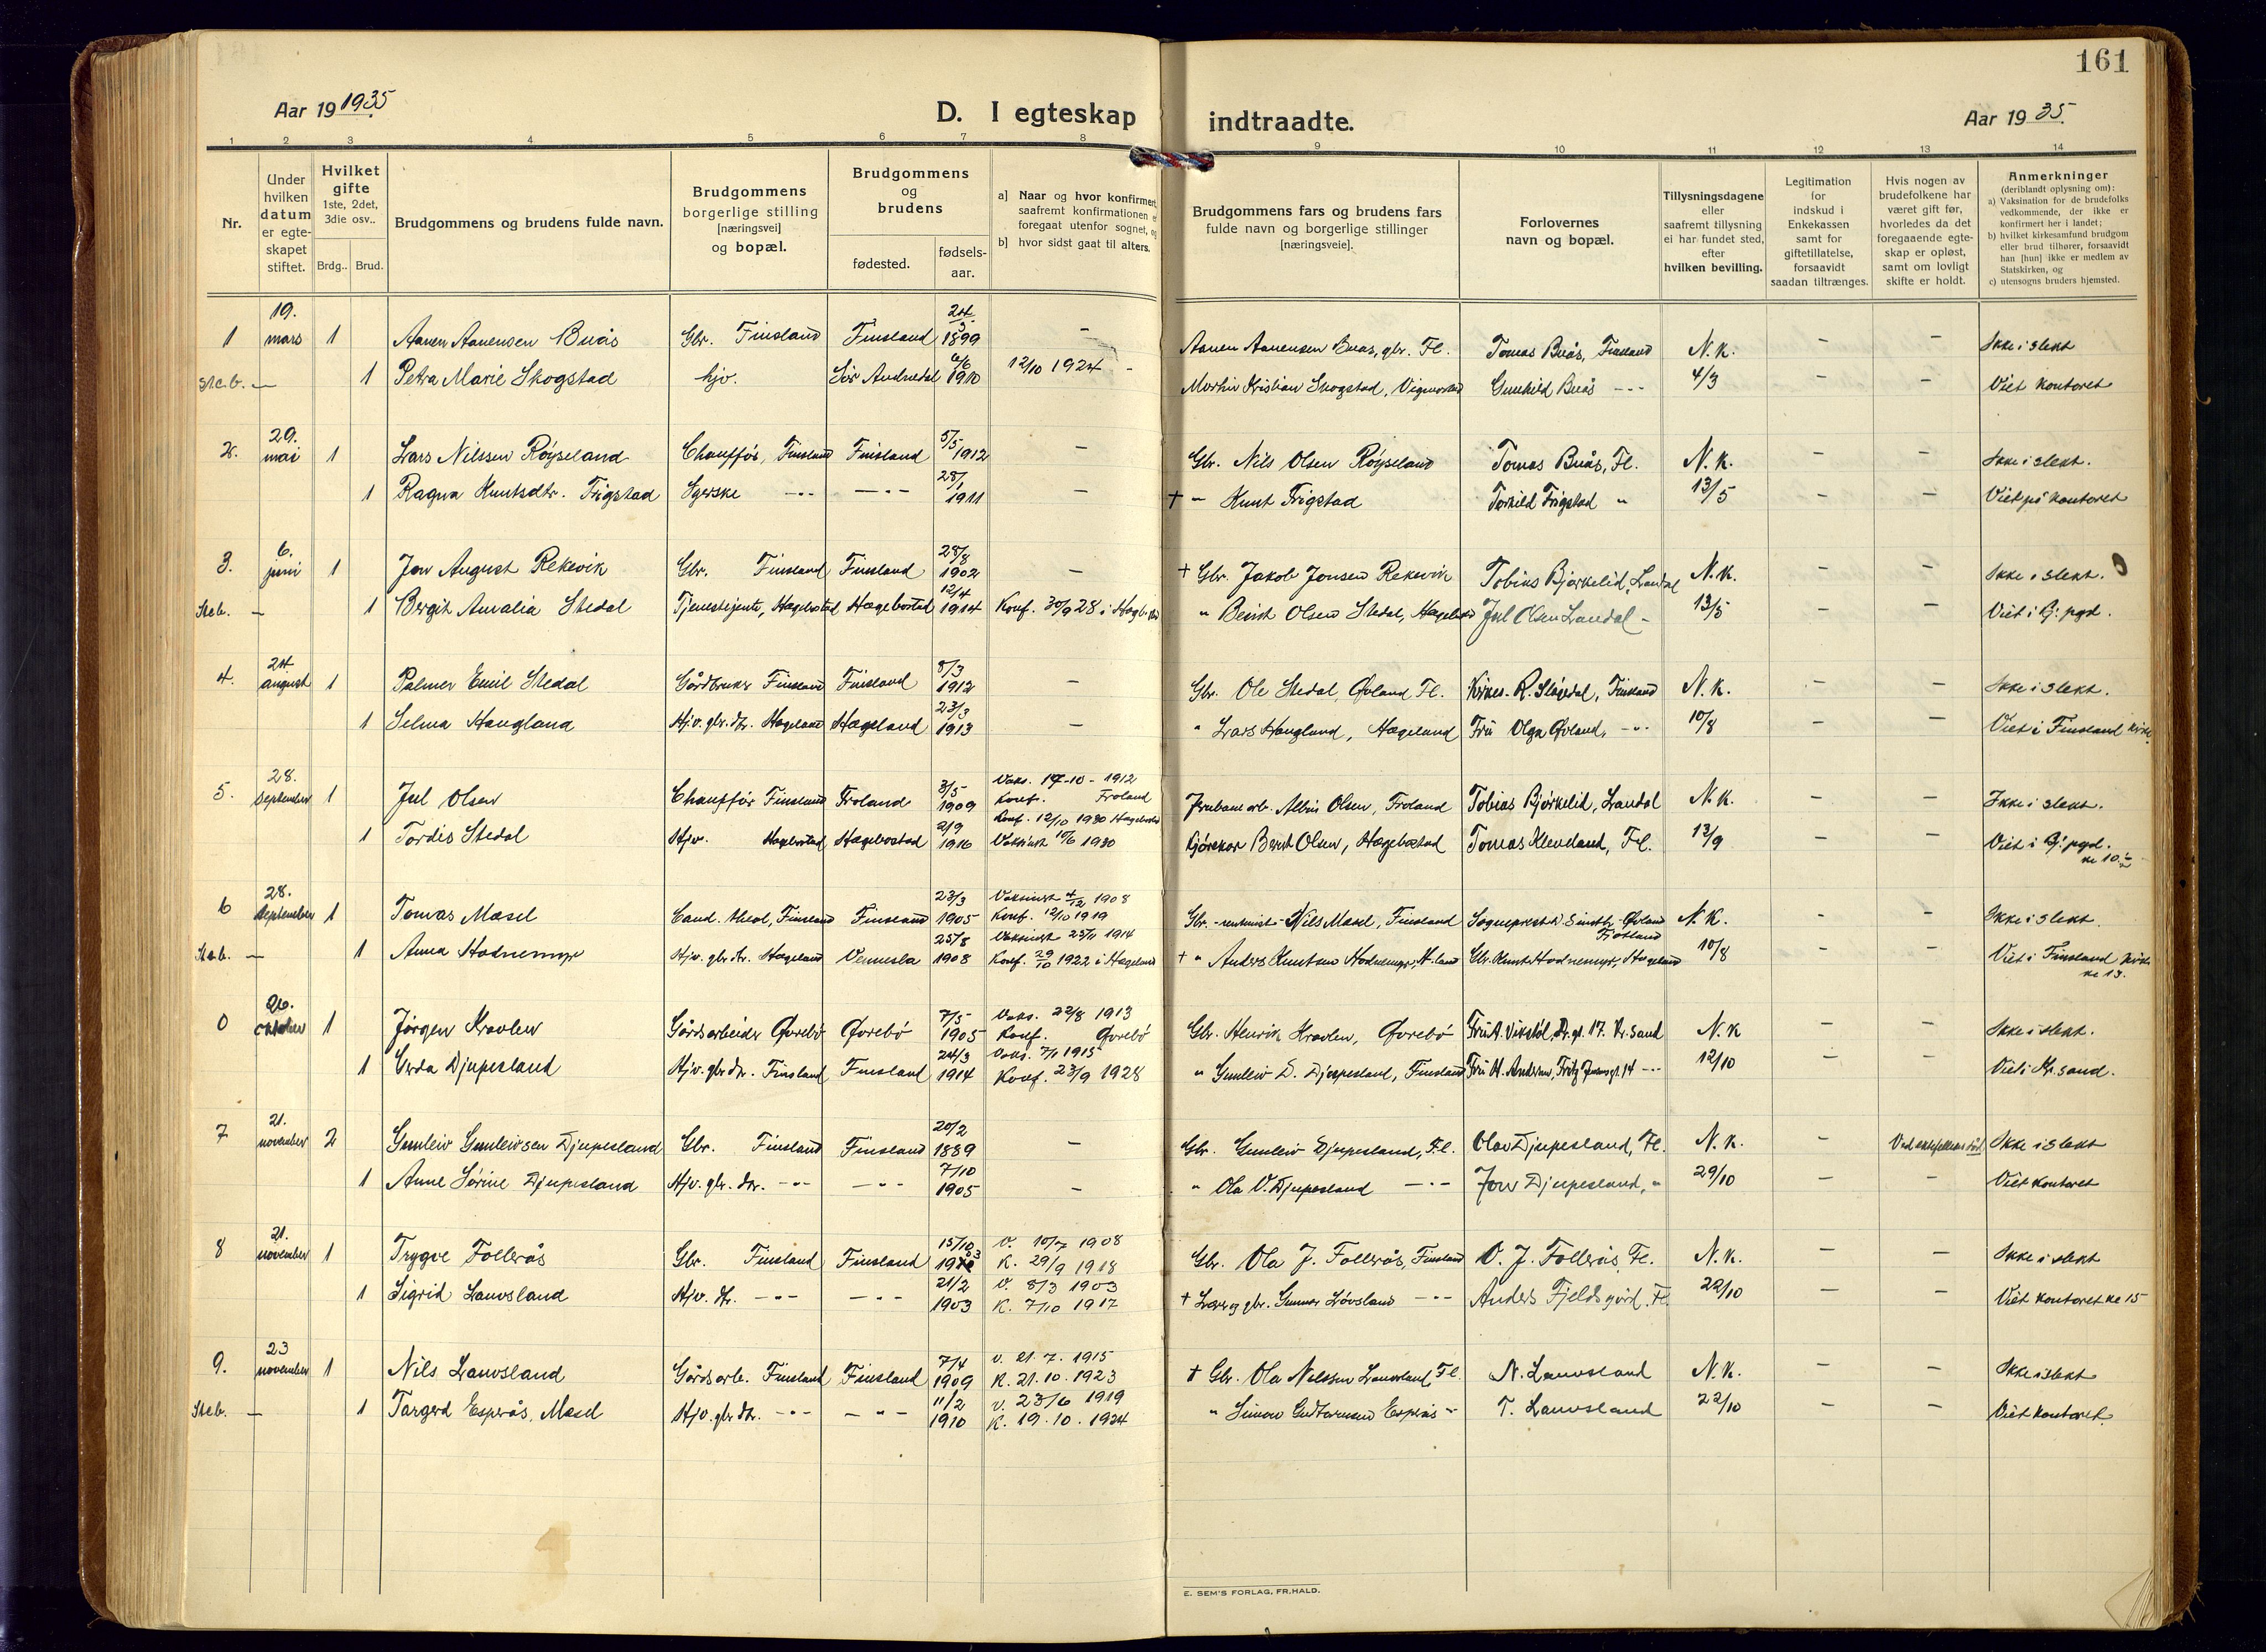 161
Aar 19 1935
D. I egteskap indtraadte.
Aar 19 35
1 2 3 4 5 6 7 8 9 10 11 12 13 14
Nr.
Under hvilken datum er egte-skapet stiftet.
Hvilket gifte 1ste, 2det, 3die osv..
Brdg.. Brud.
Brudgommens og brudens fulde navn.
Brudgommens borgerlige stilling [næringsvei] og bopæl.
Brudgommens og brudens
fødested.
fødsels-aar.
a) Naar og hvor konfirmert, saafremt konfirmationen er foregaat utenfor sognet, og
b) hvor sidst gaat til alters.
Brudgommens fars og brudens fars fulde navn og borgerlige stillinger [næringsveie].
Forlovernes navn og bopæl.
Tillysningsdagene eller saafremt tillysning ei har fundet sted, efter hvilken bevilling.
Legitimation for indskud i Enkekassen samt for giftetillatelse, forsaavidt saadan tiltrænges.
Hvis nogen av brudefolkene har været gift før, hvorledes da det foregaaende egte-skap er opløst, samt om lovligt skifte er holdt.
Anmerkninger (deriblandt oplysning om):
a) Vaksination for de brudefolks vedkommende, der ikke er konfirmert her i landet;
b) hvilket kirkesamfund brudgom eller brud tilhører, forsaavidt han [hun] ikke er medlem av Statskirken, og
c) utensogns bruders hjemsted.
1 19. mars 1 Aanen Aanensen Buås Gbr. Finsland Finsland 24/3 1899 — Aanen Aanensen Buås, gbr. Fl. Tomas Buås, Finsland N.k. — — Ikke i slekt
Skb. — 1 Petra Marie Skogstad hjv. Sør Audnedal 6/6 1910 12/10 1924 Martin Kristian Skogstad, Vigmostad Gunhild Buås -"- 4/3 — — Viet kontoret
2. 29. mai 1 Lars Nilssen Røyseland Chauffør, Finsland Finsland 5/5 1912 — Gbr. Nils Olsen Røyseland Tomas Buås, Fl. N.k. — — Ikke i slekt.
1 Ragna Knutsdtr. Frigstad Syerske -"- -"- 28/1 1911 — † — Knut Frigstad Torkild Frigstad " 13/5 — — Viet på kontoret
3. 6. juni 1 Jon August Rekevik Gbr. Finsland Finsland 28/8 1902 — † Gbr. Jakob Jonsen Rekevik Tobias Bjørkelid, Laudal N.k. — — Ikke i slekt.
Skb. — 1 Bergit Amalia Stedal Tjenestejente, Hægebostad Hægebostad 12/4 1914 Konf. 30/9 28 i Hægb.stad " Berint Olsen Stedal, Hægebostad Jul Olsen Laudal - 13/5 — — Viet i Bj: pgd.
4. 24 august 1 Palmer Emil Stedal Gårdbruker Finsland Finsland 8/3 1912 — Gbr. Ole Stedal, Øvland Fl. Kirkes. R. Sløgedal, Finsland N.k. — — Ikke i slekt.
1 Selma Haugland Hjv. gbr. dtr. Hægeland Hægeland 23/3 1913 — " Lars Haugland, Hægeland Fru Olga Øvland, -"- 10/8 — — Viet i Finsland kirke.
5. 28. September 1 Jul Olsen Chauffør Finsland Froland 3/5 1909 Vaks. 17-10-1912 Konf. Froland Jernbanearb. Albin Olsen, Froland Tobias Bjørkelid, Laudal N.k. — — Ikke i slekt.
1 Tordis Stedal Hjv. Hægebostad Hægebostad 2/9 1916 Konf. 12/10 1930 Hægebostad Vaksinert 10/6 1930 Kjørekar Berint Olsen, Hægebostad Tomas Kleveland, Fl. 13/9 — — Viet i Bj: pgd.
6 28. September 1 Tomas Mæsel Cand. theol, Finsland Finsland 23/3 1905 Vaksinert 4/12 1908 Konf. 12/10 1919 Gbr. - rentenist - Nils Mæsel, Finsland Sogneprest N.k. — — Ikke i slekt
Skb. — 1 Anna Hodnemyr Hjv. gbr. dtr. Hægeland Vennesla 25/8 1908 Vaksinert 25/11 1914 Konf. 29/10 1922 i Hægeland † " Anders Knutsen Hodnemyr, H.land Gbr. Knut Hodnemyr, Hægeland 10/8 — — Viet i Finsland kirke
0 26. oktober 1 Jørgen Kravlen Gårdsarbeider Øvrebø Øvrebø 7/5 1905 Vaks. 22/8 1913 Konf. Øvrebø Gbr. Henrik Kravlen, Øvrebø Fru A. Vikstøl, Dr. gt. 17. Kr.sand N.k — — Ikke i slekt.
1 Gerda Djupesland Hjv. gbr. dtr. Finsland Finsland 24/3 1914 Vaks. 7/1 1915 Konf. 23/9 1928 " Gunleiv D. Djupesland, Finsland Fru H. Andersen, Fritz Jensgt. 14 -"- 12/10 — — Viet i Kr.sand.
7 21. november 2 Gunleiv Gunleivsen Djupesland Gbr. Finsland Finsland 20/2 1889 — Gbr. Gunleiv Djupesland, Fl. Olav Djupesland, Fl. N.k. — Ved ektefellens død. Ikke i slekt
1 Anne Sørine Djupesland Hjv. gbr. dtr. -"- -"- 7/10 1905 — " Ola V. Djupesland -"- Jon Djupesland, " 29/10 — — Viet kontoret
8 21. november 1 Trygve Follerås Gbr. Finsland Finsland 15/10 1903 V. 10/7 1908 K. 29/9 1918 Gbr. Ola J. Follerås, Finsland O. J. Follerås, Fl. N.k. — — Ikke i slekt
1 Sigrid Lauvsland Hjv. dtr. -"- -"- 21/2 1903 V. 8/3 1903 K. 7/10 1917 † Lærer og gbr. Gunnar Løvsland -"- Anders Fjeldsgård, Fl. 22/10 — — Viet kontoret kl 15
9. 23 november 1 Nils Lauvsland Gårdsarb. Finsland Finsland 7/4 1909 V. 21.7.1915 K. 21.10.1923 † Gbr. Ola Nilssen Lauvsland, Fl. N. Lauvsland N.k. — — Ikke i slekt
Skb. — 1 Targerd Esperås, Mæsel Hjv. gbr. dtr. -"- -"- 11/2 1910 V. 23/6 1919 K. 19.10.1924 " Simon Guttormsen Esperås -"- T. Lauvsland 22/10 — — Viet kontoret.
E. SEM'S FORLAG, FR.HALD.